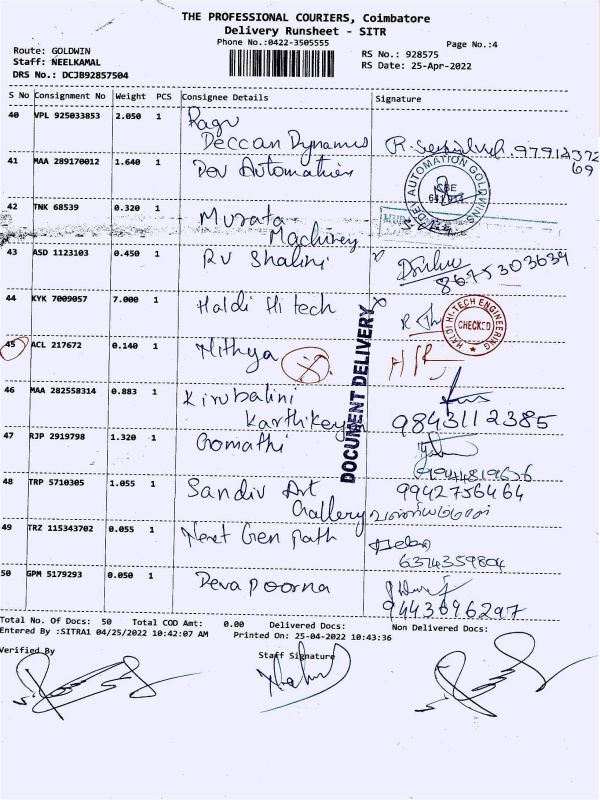 THE PROFESSIONAL COURIERS, Coimbatore
Delivery Runsheet - SITR
Phone No.:0422-3505555
Page No.:4
Route: GOLDWIN
Staff: NEELKAMAL
DRS No.: DCJB92857504
RS No.: 928575
RS Date: 25-Apr-2022
S No Consignment No Weight PCS Consignee Details Signature
40 VPL 925033853 2.050 1 Ragu
Deccan Dynamics
41 MAA 289170012 1.640 1 Dev Automation
DEV AUTOMATION GOLDWINS
CBE
641 014
42 TNK 68539 0.320 1 Murata
Machinery
43 ASD 1123103 0.450 1 RV Shalini
8675303639
44 KYK 7009057 7.000 1 Haldi Hi tech
HALDI HI-TECH ENGINEERING
CHECKED
DOCUMENT DELIVERY
45 ACL 217672 0.140 1 Nithya
46 MAA 282558314 0.883 1 Kirubalini
Karthikeyan
9843112385
47 RJP 2919798 1.320 1 Gomathi
48 TRP 5710305 1.055 1 Sandiv Art
Gallery
9942756464
49 TRZ 115343702 0.055 1 Next Gen path
6374359804
50 GPM 5179293 0.050 1 Deva poorna
9443696297
Total No. Of Docs: 50 Total COD Amt: 0.00 Delivered Docs: Non Delivered Docs:
Entered By :SITRA1 04/25/2022 10:42:07 AM Printed On: 25-04-2022 10:43:36
Verified By
Staff Signature